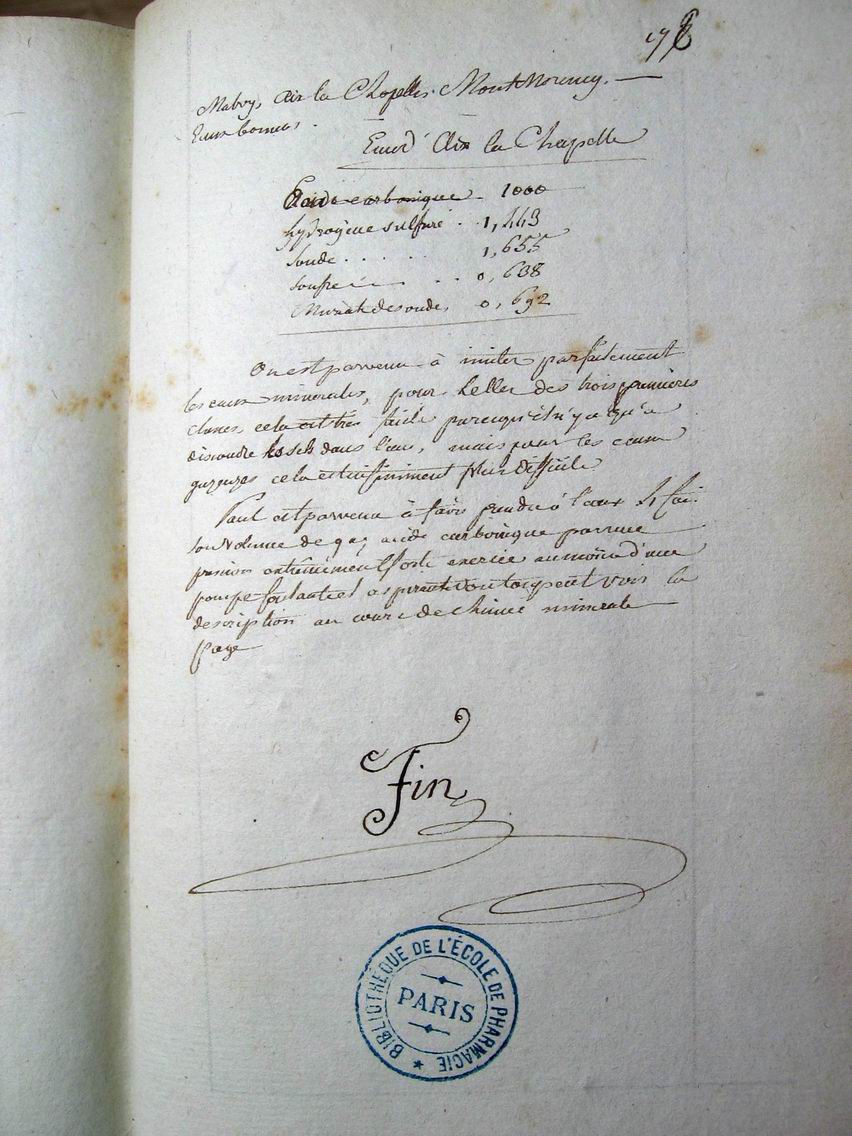 178
aix la Chapelle. MontMorency. —
Eaux bonnes.
Eau d' Aix la Chapelle
Acide carbonique 1000
hydrogene sulfuré . 1,443
soude . . . . . 1,655
soufre . . 0, 608
Muriate de soude, 0, 692
On est parvenu à imiter parfaitement
les eaux minerales, pour celles des trois premières
classes cela est très facile parcequ'il n'y a qu'a
dissoudre les sels dans l'eau, mais pour les eaux
gazeuzes cela est infiniment plus difficile
Paul est parvenu à faire prendre à l'eau
son volume de gaz acide carbonique par une
pression extrêmement forte exercée au moyen d'une
pompe foulante et aspirante on peut voir la
description au cours de chimie minerale
page
Fin
BIBLIOTHÈQUE DE L'ÉCOLE DE PHARMACIE
PARIS